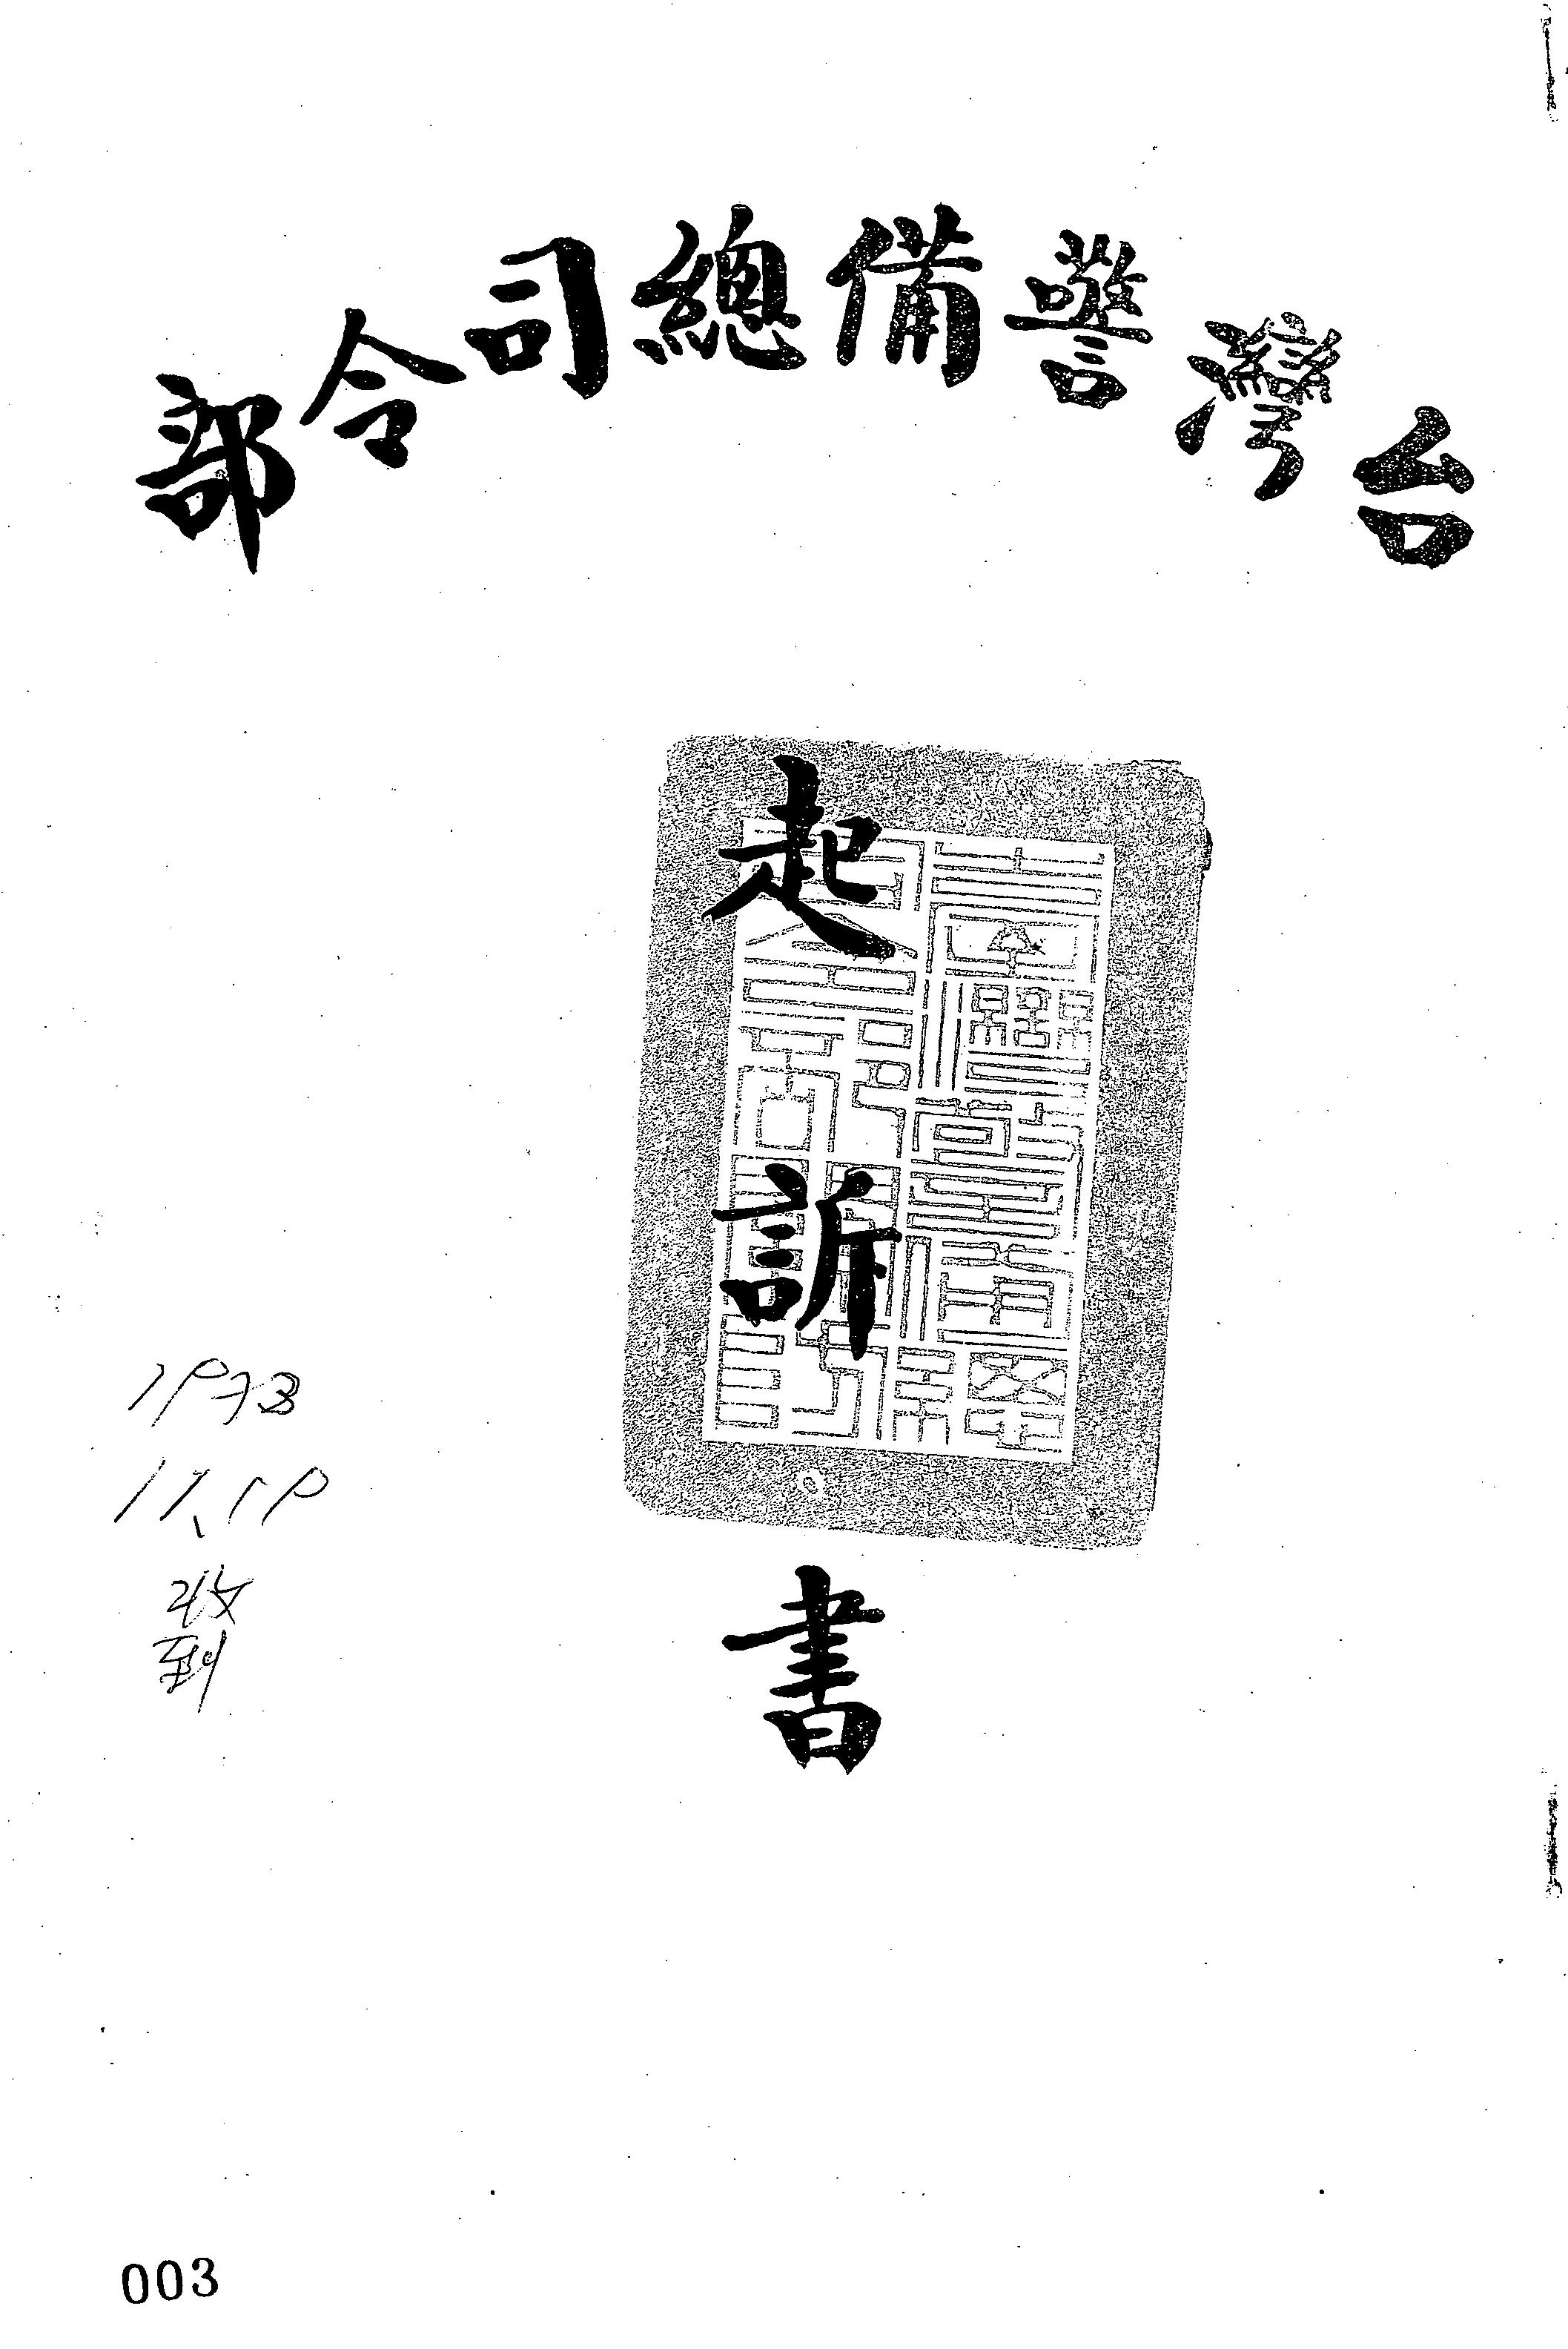 台灣警備總司令部
起訴書
1973
11、19
收到
003